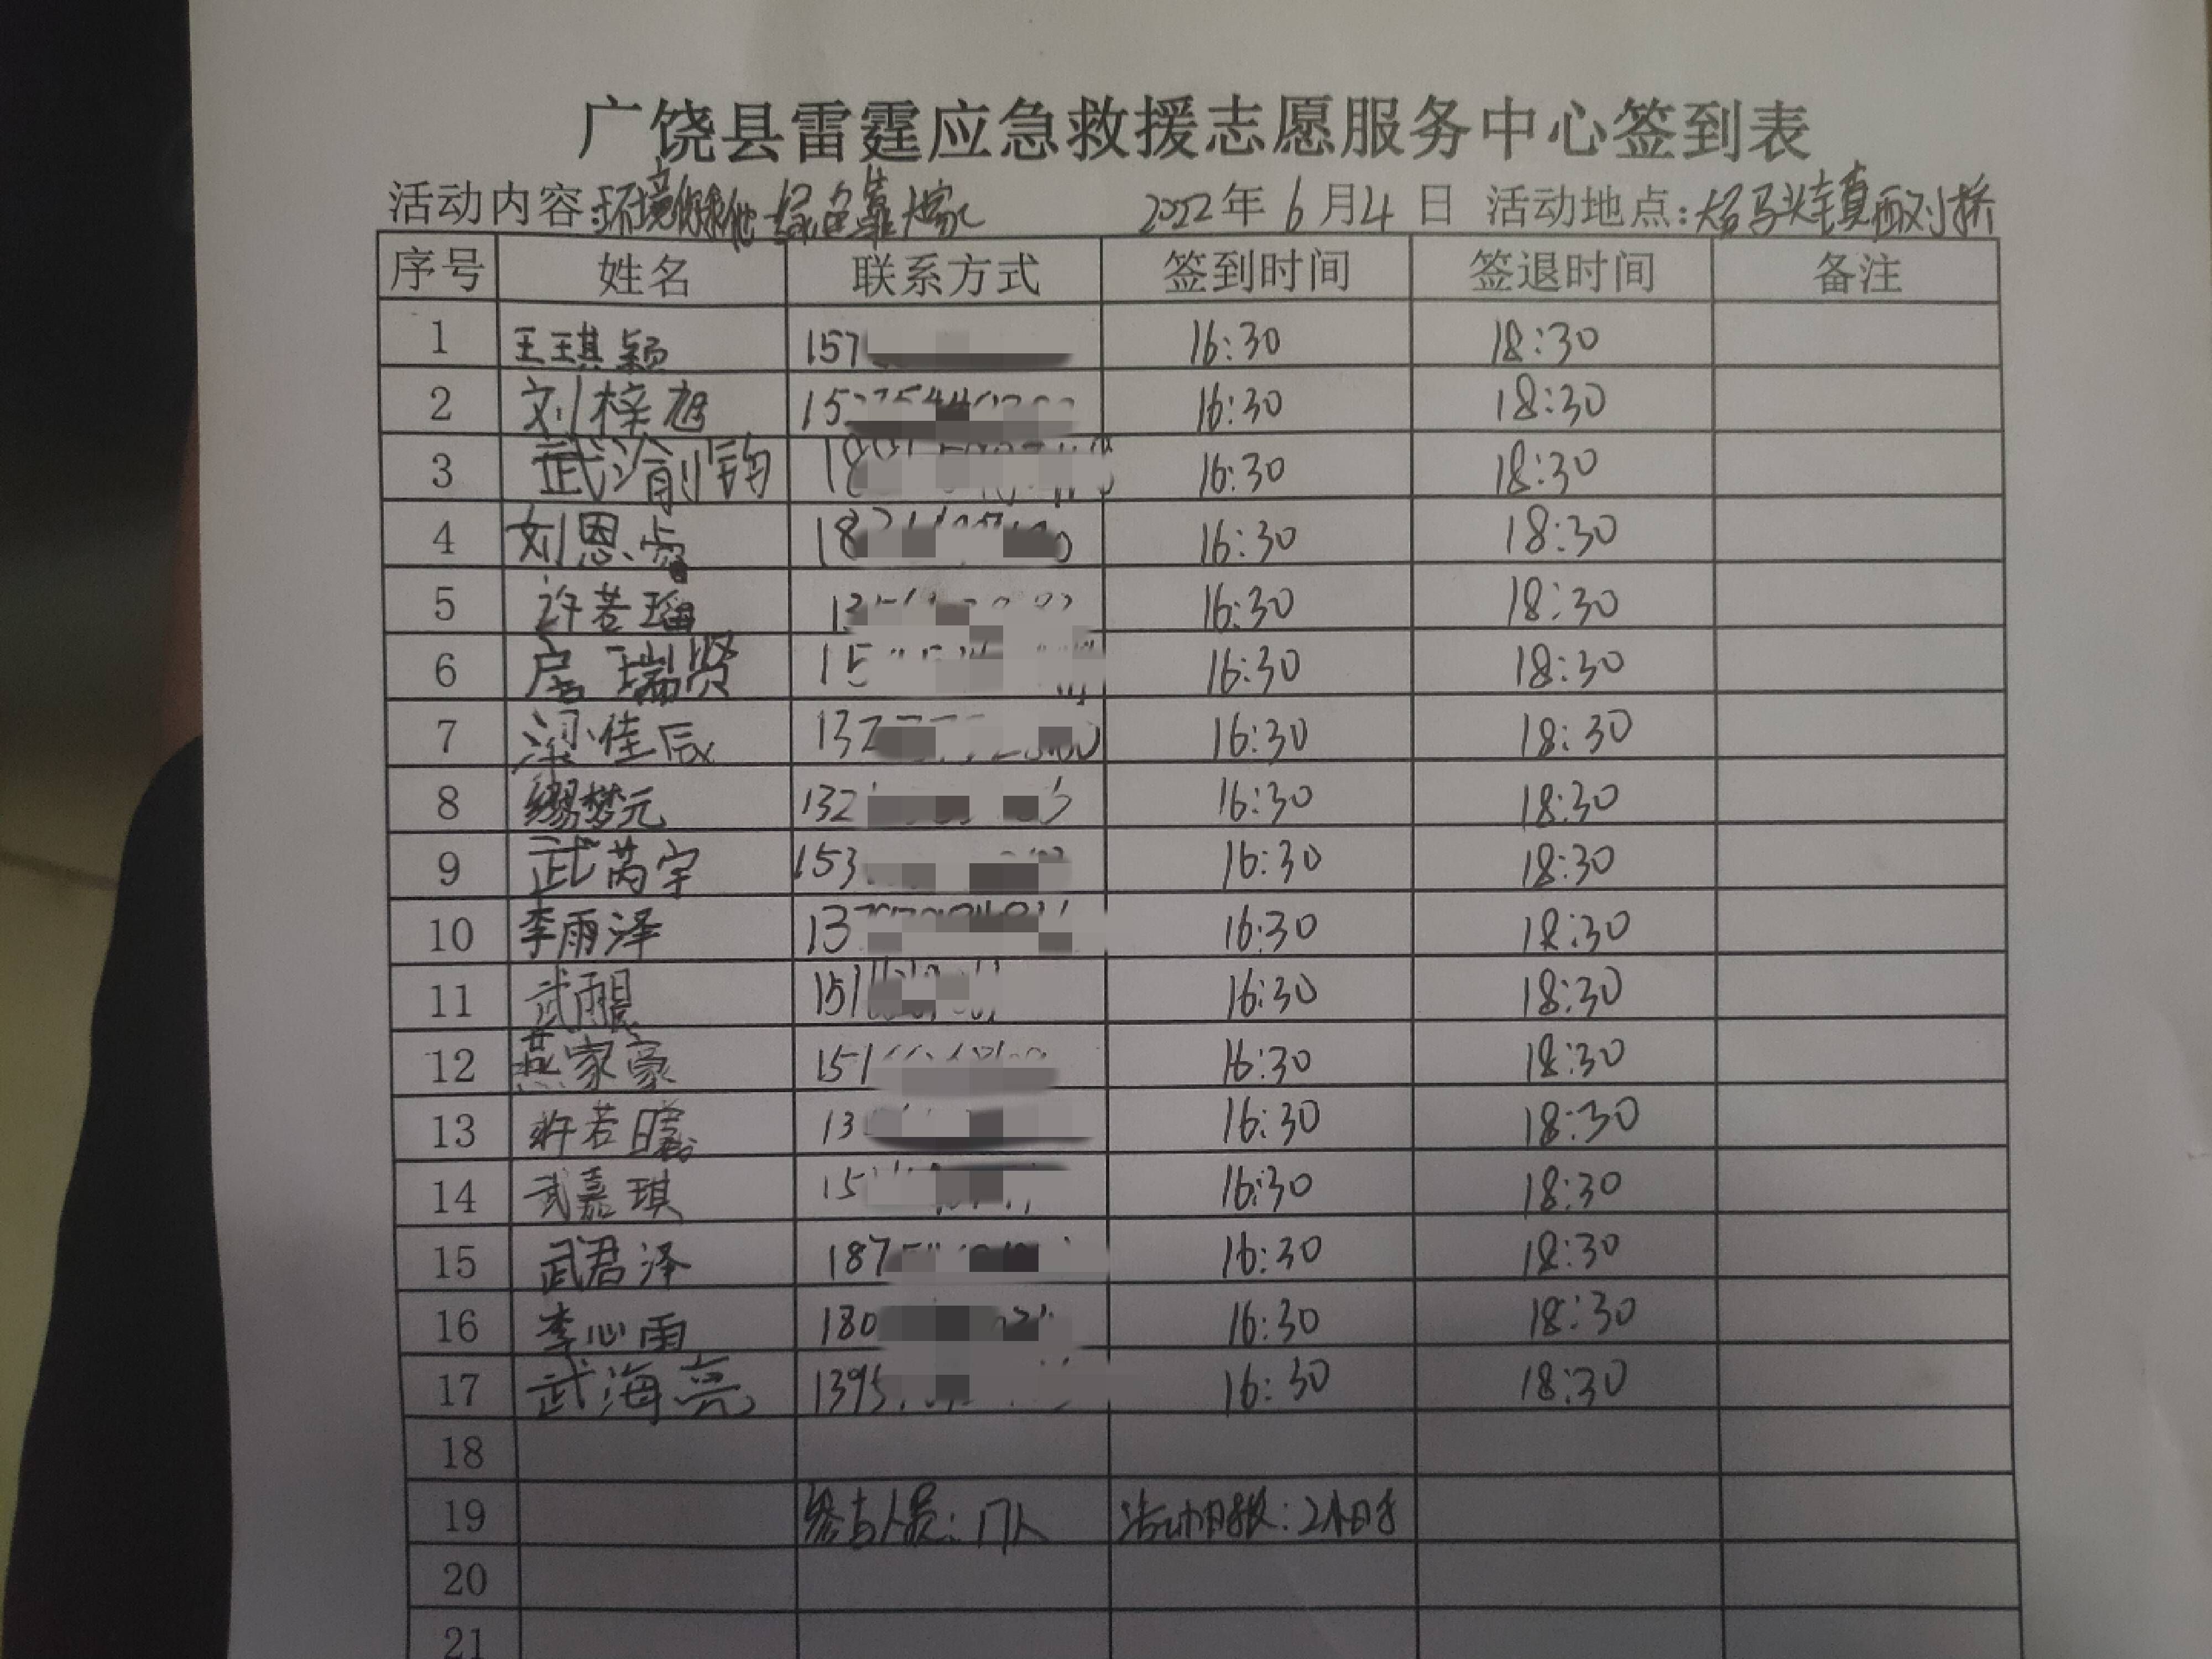 广饶县雷霆应急救援志愿服务中心签到表
活动内容:环境你我他 绿色靠大家 2022年6月4日 活动地点:大码头镇西刘桥
序号 姓名 联系方式 签到时间 签退时间 备注
1 王琪颖 157 16:30 18:30
2 刘梓旭 15 16:30 18:30
3 武渝钧 18 16:30 18:30
4 刘恩睿 18 16:30 18:30
5 许若瑶 13 16:30 18:30
6 房瑞贤 15 16:30 18:30
7 梁佳辰 137 16:30 18:30
8 缪梦元 132 16:30 18:30
9 武芮宇 153 16:30 18:30
10 李雨泽 13 16:30 18:30
11 武雨晨 151 16:30 18:30
12 燕家豪 151 16:30 18:30
13 许若曦 13 16:30 18:30
14 武嘉琪 15 16:30 18:30
15 武君泽 187 16:30 18:30
16 李心雨 180 16:30 18:30
17 武海亮 1395 16:30 18:30
18
19 参与人员:17人 活动时长:2小时
20
21